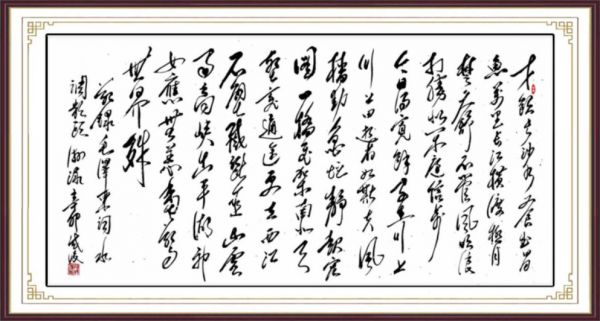 才饮长沙水又食武昌
鱼万里长江横渡极目
楚天舒不管风吹浪
打胜似闲庭信步
今日得宽馀子在
川上曰逝者如斯夫风
樯动龟蛇静起宏
图一桥飞架南北天
堑变通途更立西江
石壁截断巫山云
雨高峡出平湖神
女應無恙当惊
世界殊
录毛泽东词水
调歌头游泳辛卯